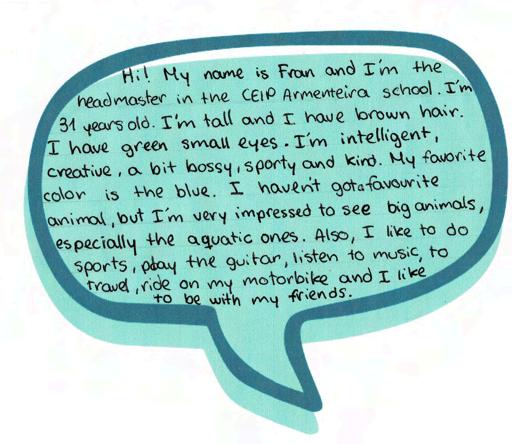 Hi! My name is Fran and I'm the
headmaster in the CEIP Armenteira school. I'm
31 years old. I'm tall and I have brown hair.
I have green small eyes. I'm intelligent,
creative, a bit bossy, sporty and kind. My favorite
color is the blue. I haven't got a favourite
animal, but I'm very impressed to see big animals,
especially the aquatic ones. Also, I like to do
sports, play the guitar, listen to music, to
travel, ride on my motorbike and I like
to be with my friends.